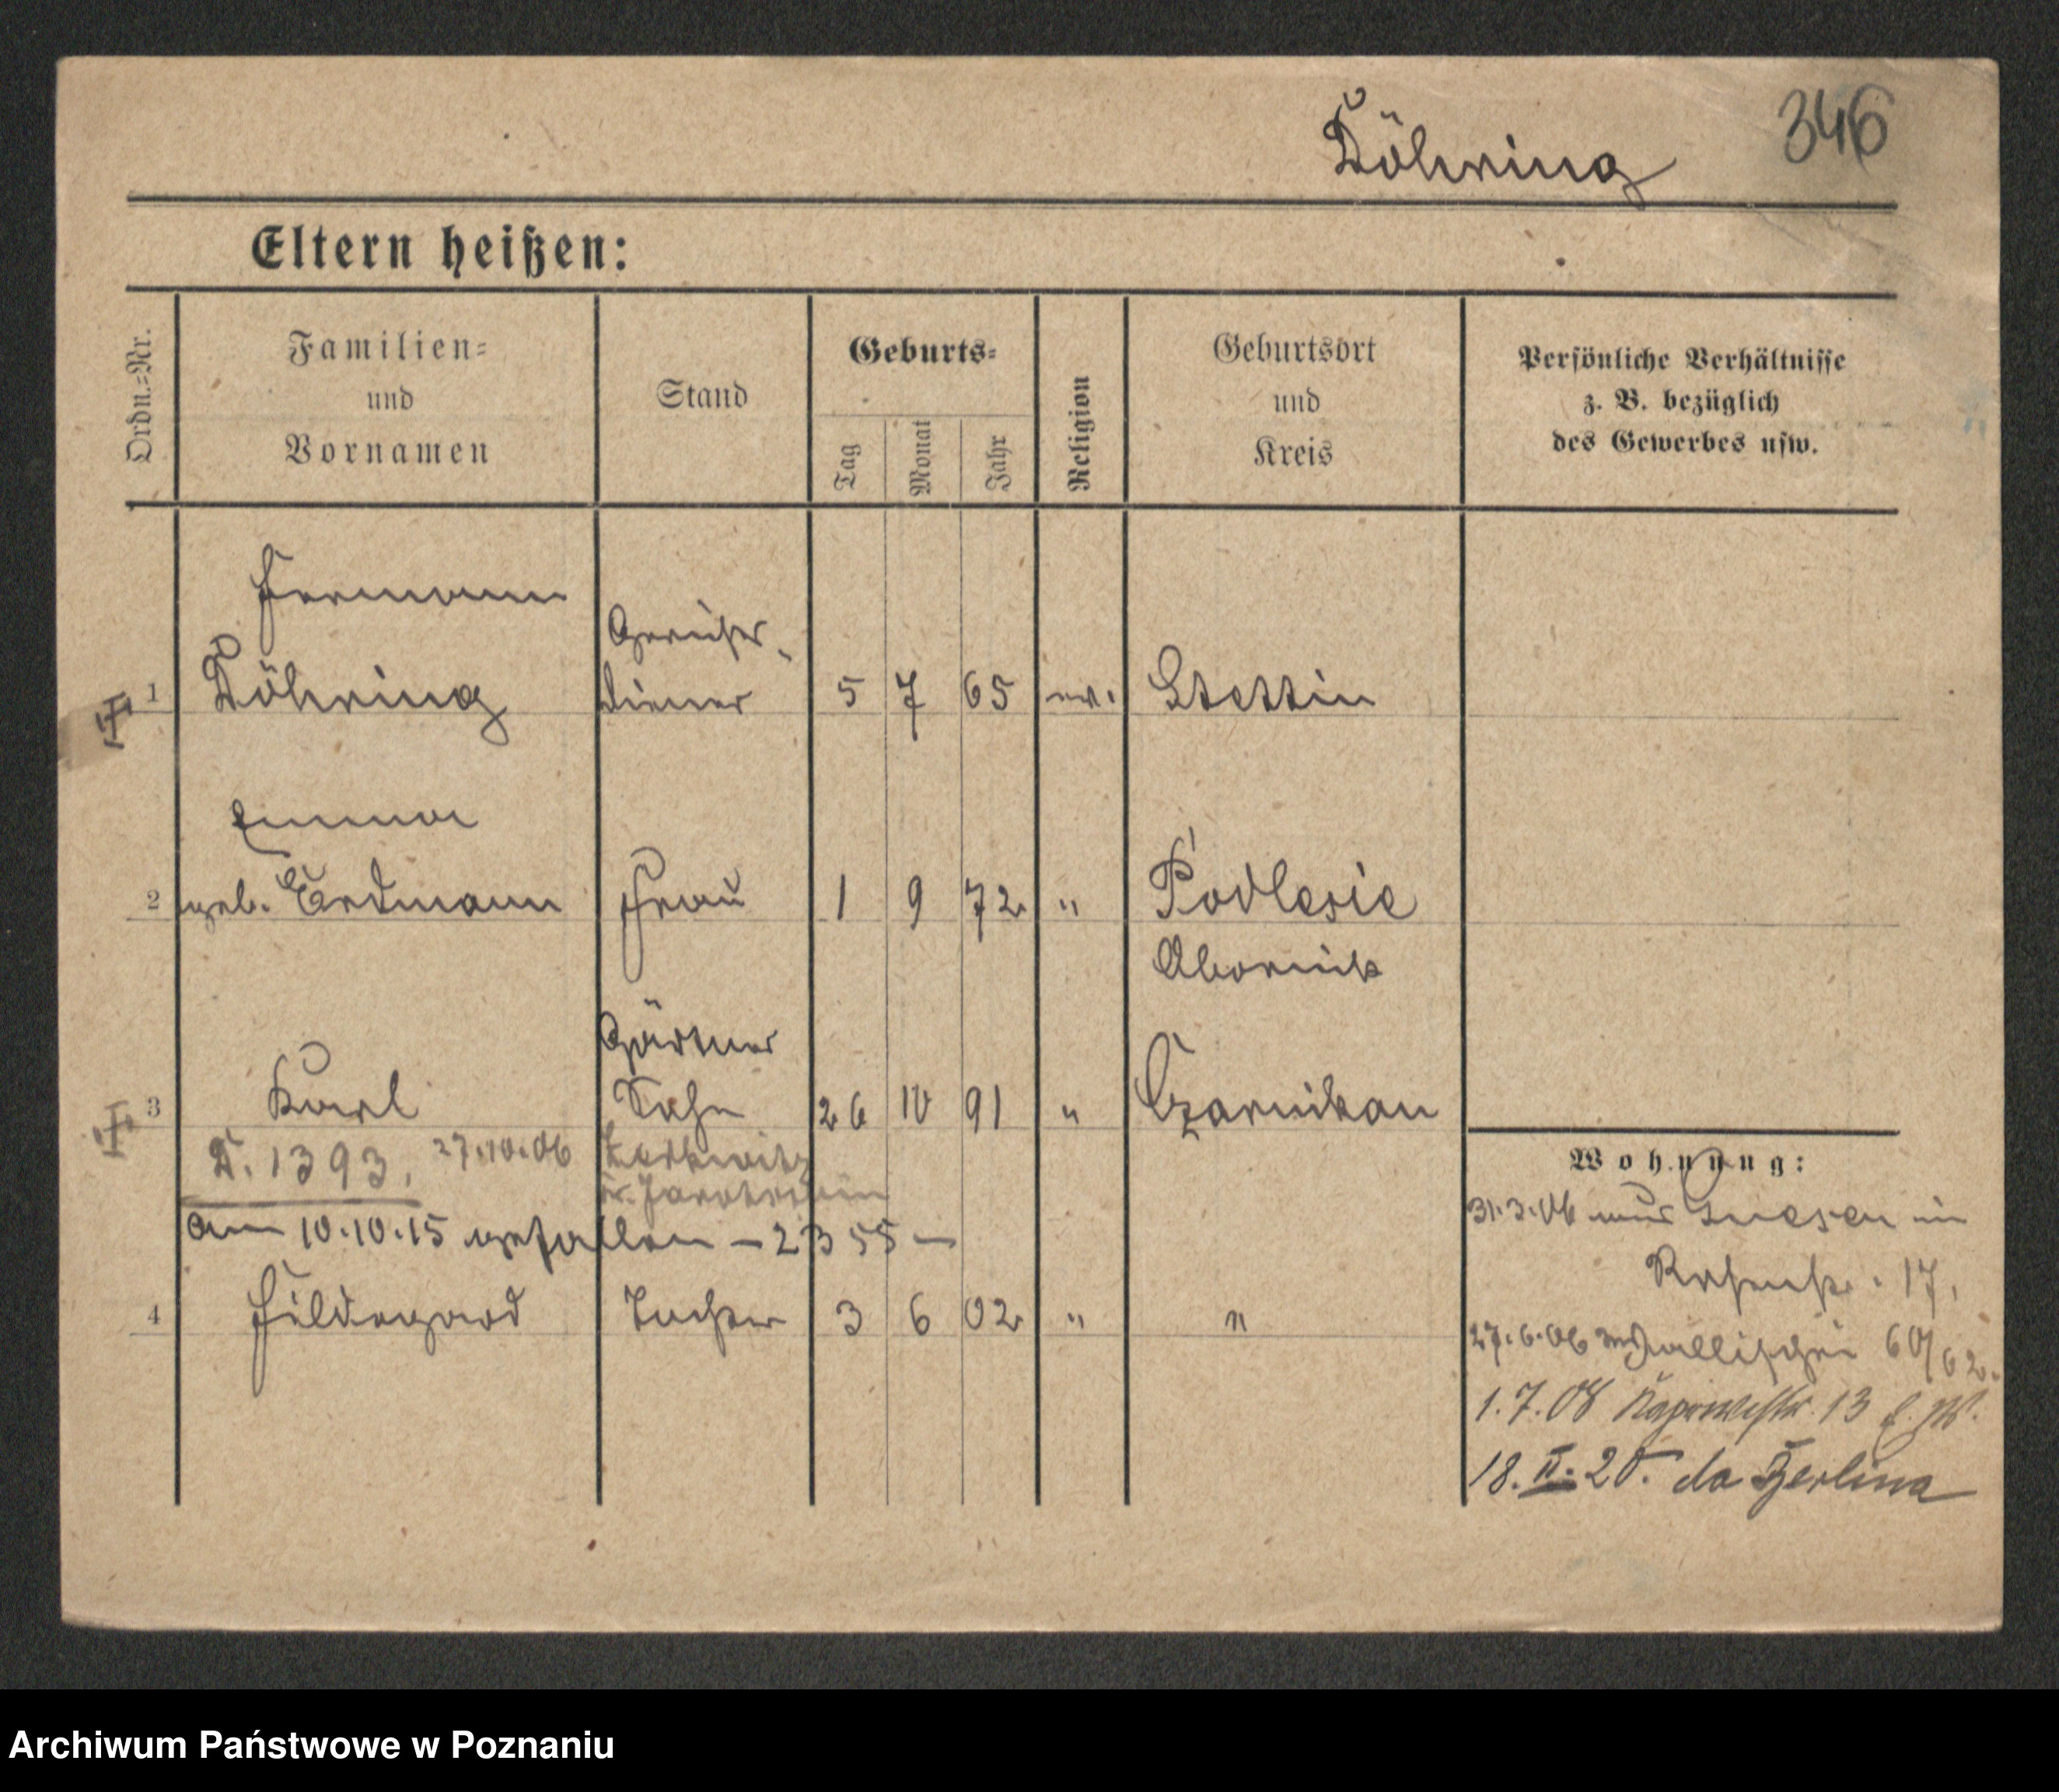 346
Döhring
Eltern heißen:
Ordn.=Nr.
Familien=
und
Vornamen
Stand
Geburts=
Tag
Monat
Jahr
Religion
Geburtsort
und
Kreis
Persönliche Verhältnisse
z. B. bezüglich
des Gewerbes usw.
Hermann
Gerichts-
1 Döhring diener 5 7 65 ev. Stettin
Emma
2 geb. Erdmann Frau 1 9 72 " Podlesie
Obornik
Gärtner
3 Karl Sohn 26 10 91 " Czarnikau
D. 1393. 27.10.06
am 10.10.15 gefallen – 2355 –
4 Hildegard Tochter 3 6 02 " "
Wohnung:
31.3.06 aus Gnesen in
17.
27.6.06 Wallischei 60/62.
1.7.08 13
18.II.20. do Berlina
Archiwum Państwowe w Poznaniu